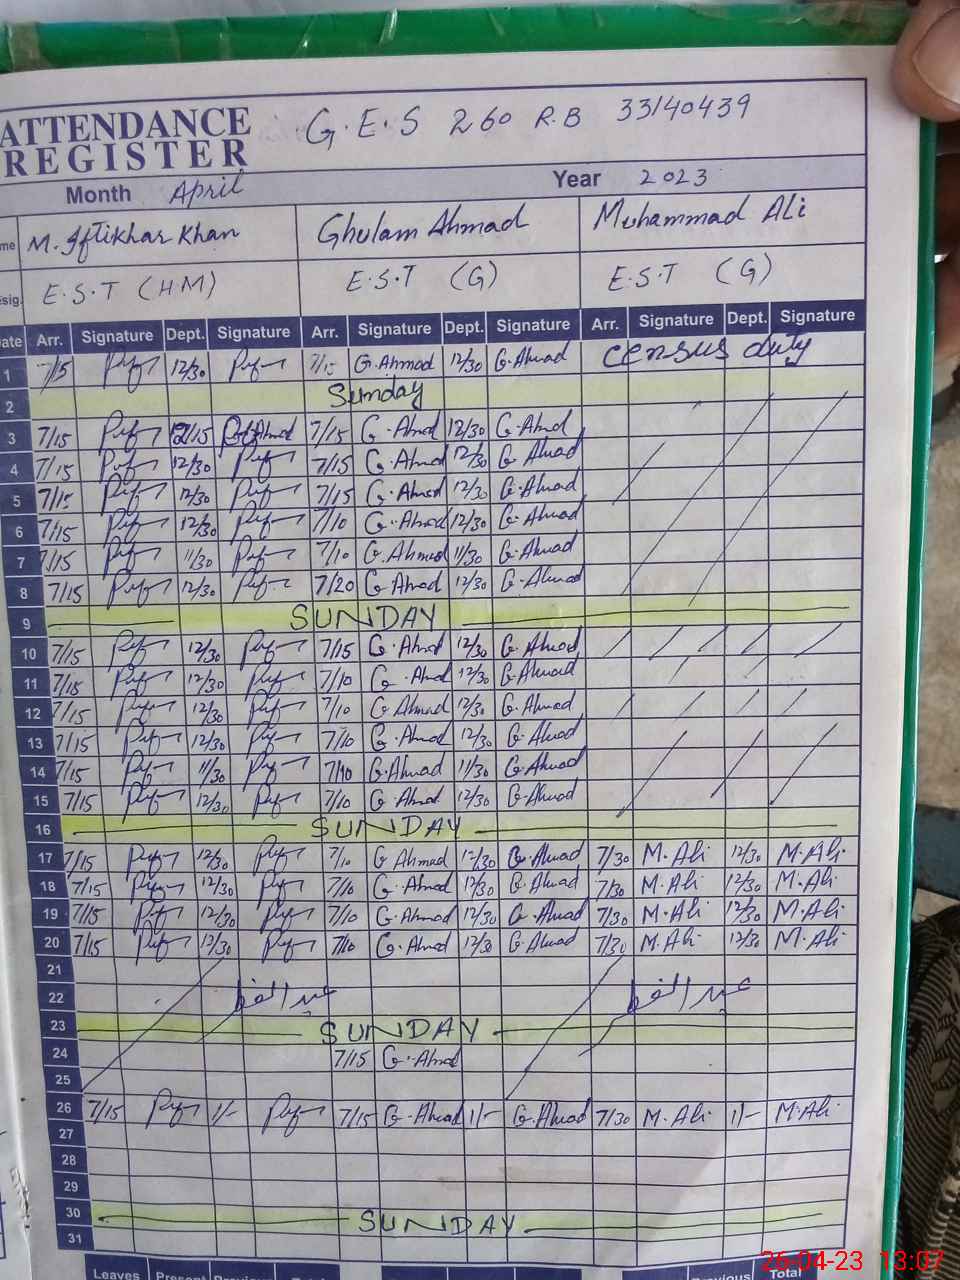 ATTENDANCE REGISTER G.E.S 260 R.B 33140439
Month April Year 2023
me M. Iftikhar Khan Ghulam Ahmad Muhammad Ali
esig. E.S.T (HM) E.S.T (G) E.S.T (G)
ate Arr. Signature Dept. Signature Arr. Signature Dept. Signature Arr. Signature Dept. Signature
1 7/15 12/30 7/15 G.Ahmad 12/30 G.Ahmad census duty
2 Sunday
3 7/15 7/15 G.Ahmad 12/30 G.Ahmad
4 7/15 12/30 7/15 G.Ahmad 12/30 G.Ahmad
5 7/15 12/30 7/15 G.Ahmad 12/30 G.Ahmad
6 7/15 12/30 7/10 G.Ahmad 12/30 G.Ahmad
7 7/15 11/30 7/10 G.Ahmad 11/30 G.Ahmad
8 7/15 12/30 7/20 G.Ahmad 12/30 G.Ahmad
9 SUNDAY
10 7/15 12/30 7/15 G.Ahmad 12/30 G.Ahmad
11 7/15 12/30 7/10 G.Ahmad 12/30 G.Ahmad
12 7/15 12/30 7/10 G.Ahmad 12/30 G.Ahmad
13 7/15 12/30 7/10 G.Ahmad 12/30 G.Ahmad
14 7/15 11/30 7/10 G.Ahmad 11/30 G.Ahmad
15 7/15 12/30 7/10 G.Ahmad 12/30 G.Ahmad
16 SUNDAY
17 7/15 12/30 7/10 G.Ahmad 12/30 G.Ahmad 7/30 M.Ali 12/30 M.Ali
18 7/15 12/30 7/10 G.Ahmad 12/30 G.Ahmad 7/30 M.Ali 12/30 M.Ali
19 7/15 12/30 7/10 G.Ahmad 12/30 G.Ahmad 7/30 M.Ali 12/30 M.Ali
20 7/15 12/30 7/10 G.Ahmad 12/30 G.Ahmad 7/30 M.Ali 12/30 M.Ali
21
22 عید الفطر عید الفطر
23 SUNDAY
24 7/15 G.Ahmad
25
26 7/15 1/- 7/15 G.Ahmad 1/- G.Ahmad 7/30 M.Ali 1/- M.Ali
27
28
29
30 SUNDAY
31
Leaves Present Previous Total
26-04-23 13:07